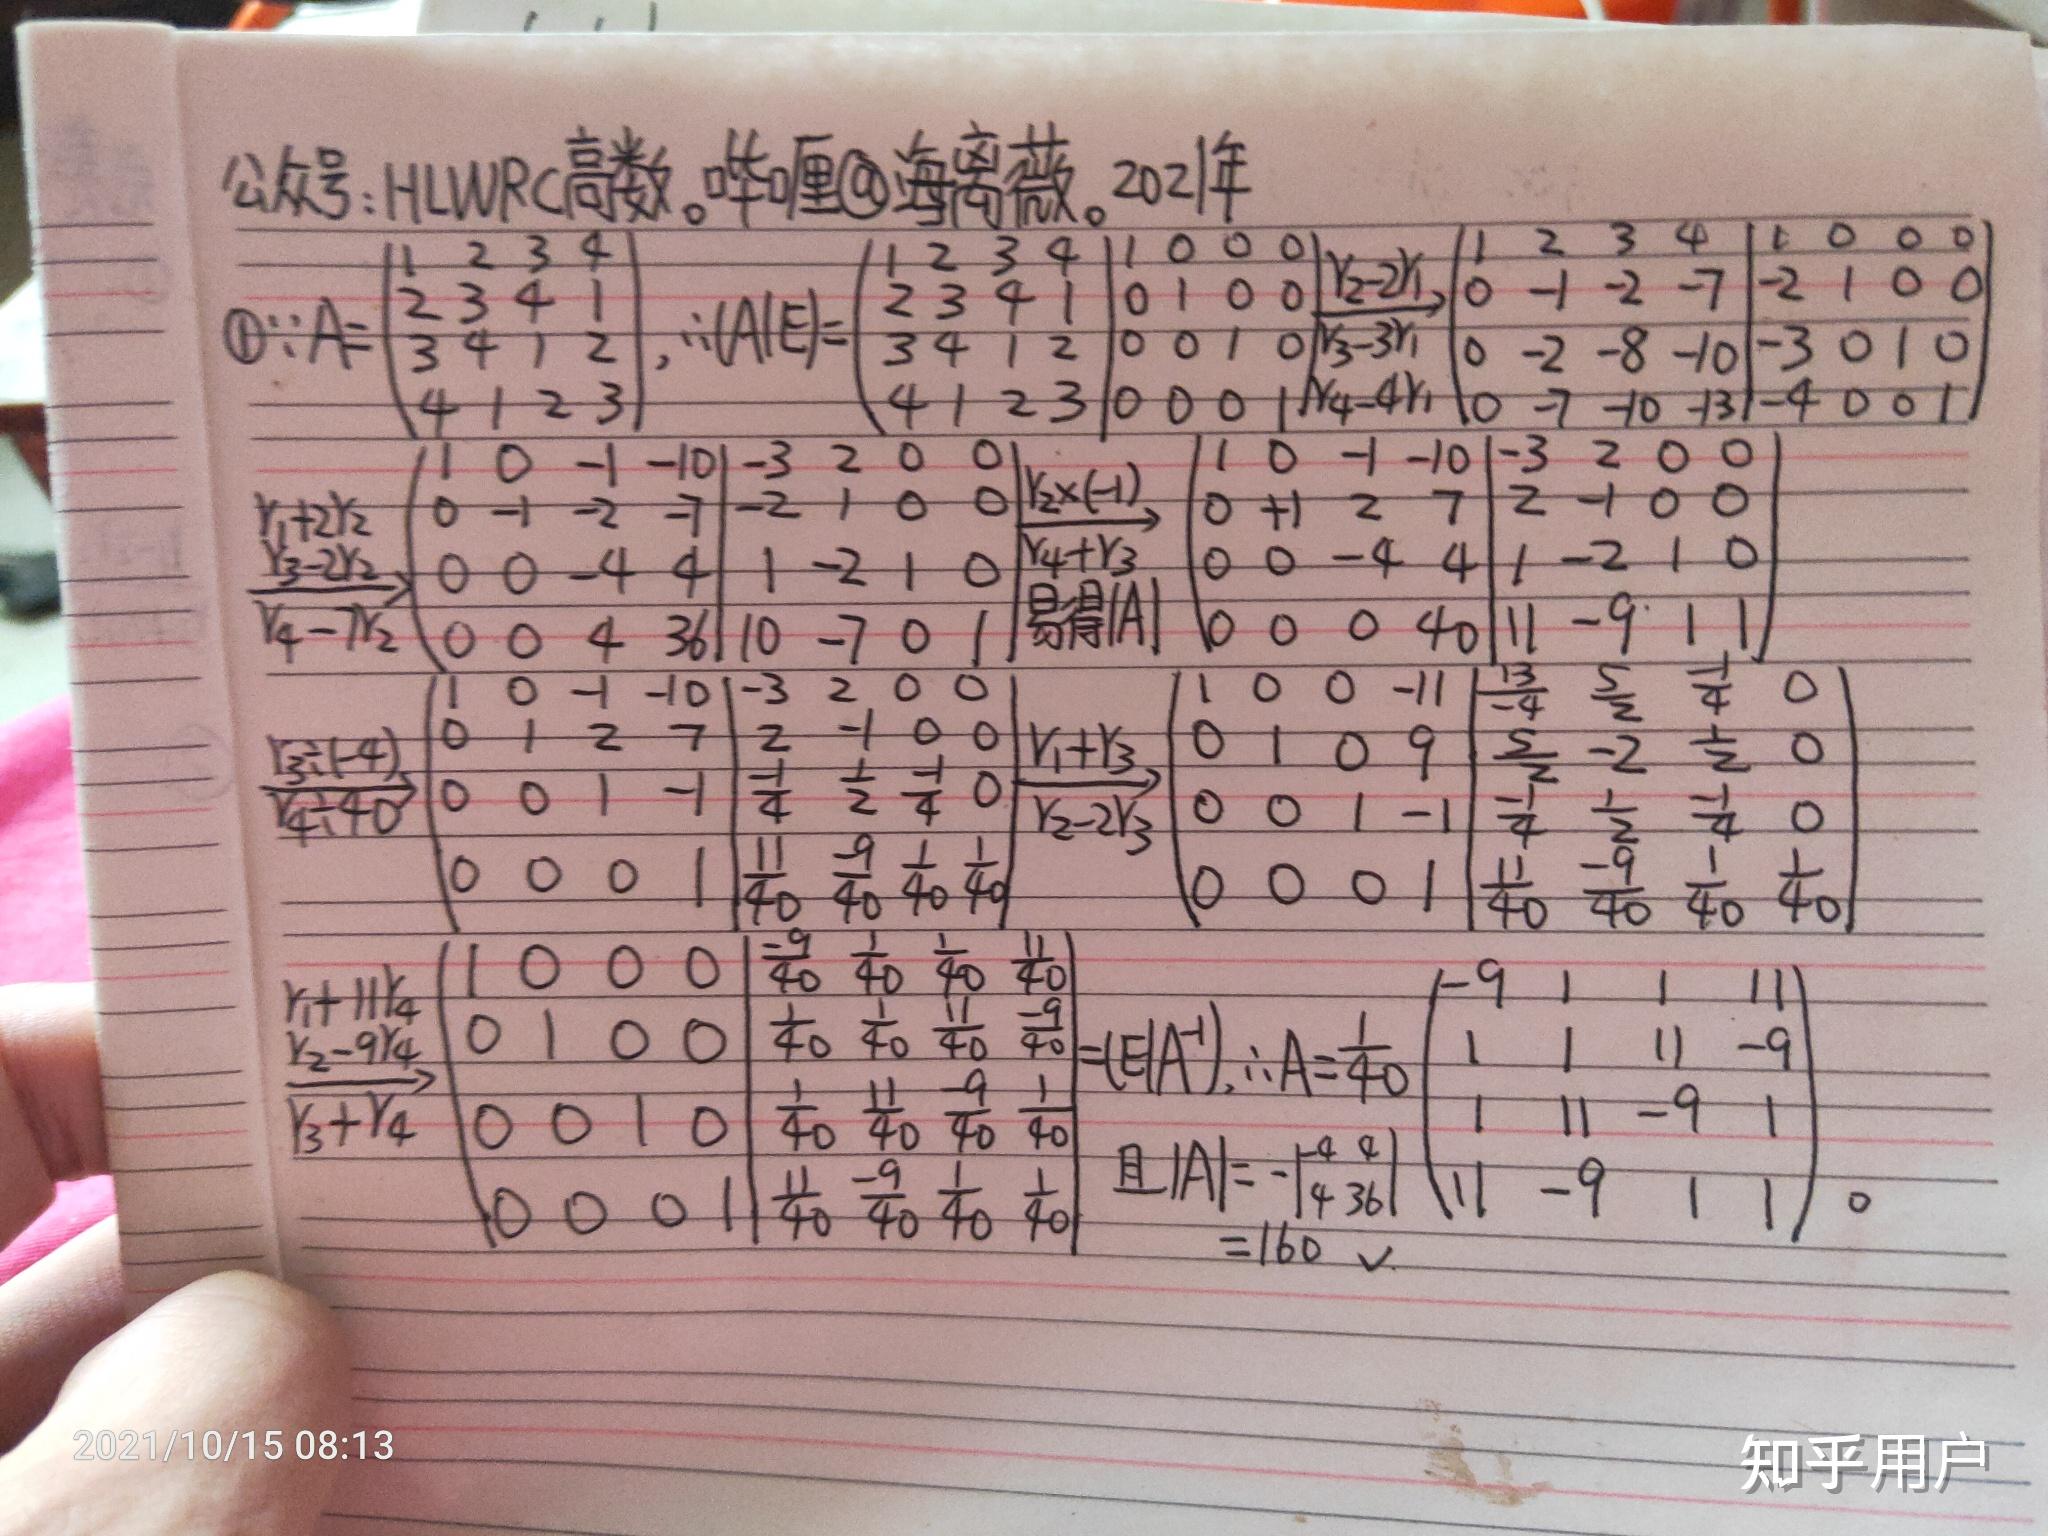 公众号:HLWRC高数。哔哩@海离薇。2021年
①∵A=(1 2 3 4
2 3 4 1
3 4 1 2
4 1 2 3),∴(A|E)=(1 2 3 4|1 0 0 0
2 3 4 1|0 1 0 0
3 4 1 2|0 0 1 0
4 1 2 3|0 0 0 1)
r2-2r1
r3-3r1
r4-4r1
(1 2 3 4|1 0 0 0
0 -1 -2 -7|-2 1 0 0
0 -2 -8 -10|-3 0 1 0
0 -7 -10 -13|-4 0 0 1)
r1+2r2
r3-2r2
r4-7r2
(1 0 -1 -10|-3 2 0 0
0 -1 -2 -7|-2 1 0 0
0 0 -4 4|1 -2 1 0
0 0 4 36|10 -7 0 1)
r2×(-1)
r4+r3
易得|A|
(1 0 -1 -10|-3 2 0 0
0 +1 2 7|2 -1 0 0
0 0 -4 4|1 -2 1 0
0 0 0 40|11 -9 1 1)
r3÷(-4)
r4÷40
(1 0 -1 -10|-3 2 0 0
0 1 2 7|2 -1 0 0
0 0 1 -1|-1/4 1/2 -1/4 0
0 0 0 1|11/40 -9/40 1/40 1/40)
r1+r3
r2-2r3
(1 0 0 -11|13/-4 5/2 -1/4 0
0 1 0 9|5/2 -2 1/2 0
0 0 1 -1|-1/4 1/2 -1/4 0
0 0 0 1|11/40 -9/40 1/40 1/40)
r1+11r4
r2-9r4
r3+r4
(1 0 0 0|-9/40 1/40 1/40 11/40
0 1 0 0|1/40 1/40 11/40 -9/40
0 0 1 0|1/40 11/40 -9/40 1/40
0 0 0 1|11/40 -9/40 1/40 1/40)
=(E|A⁻¹),∴A=1/40
(-9 1 1 11
1 1 11 -9
1 11 -9 1
11 -9 1 1)。
且|A|=-|-4 4
4 36|
=160 ✓.
2021/10/15 08:13
知乎用户